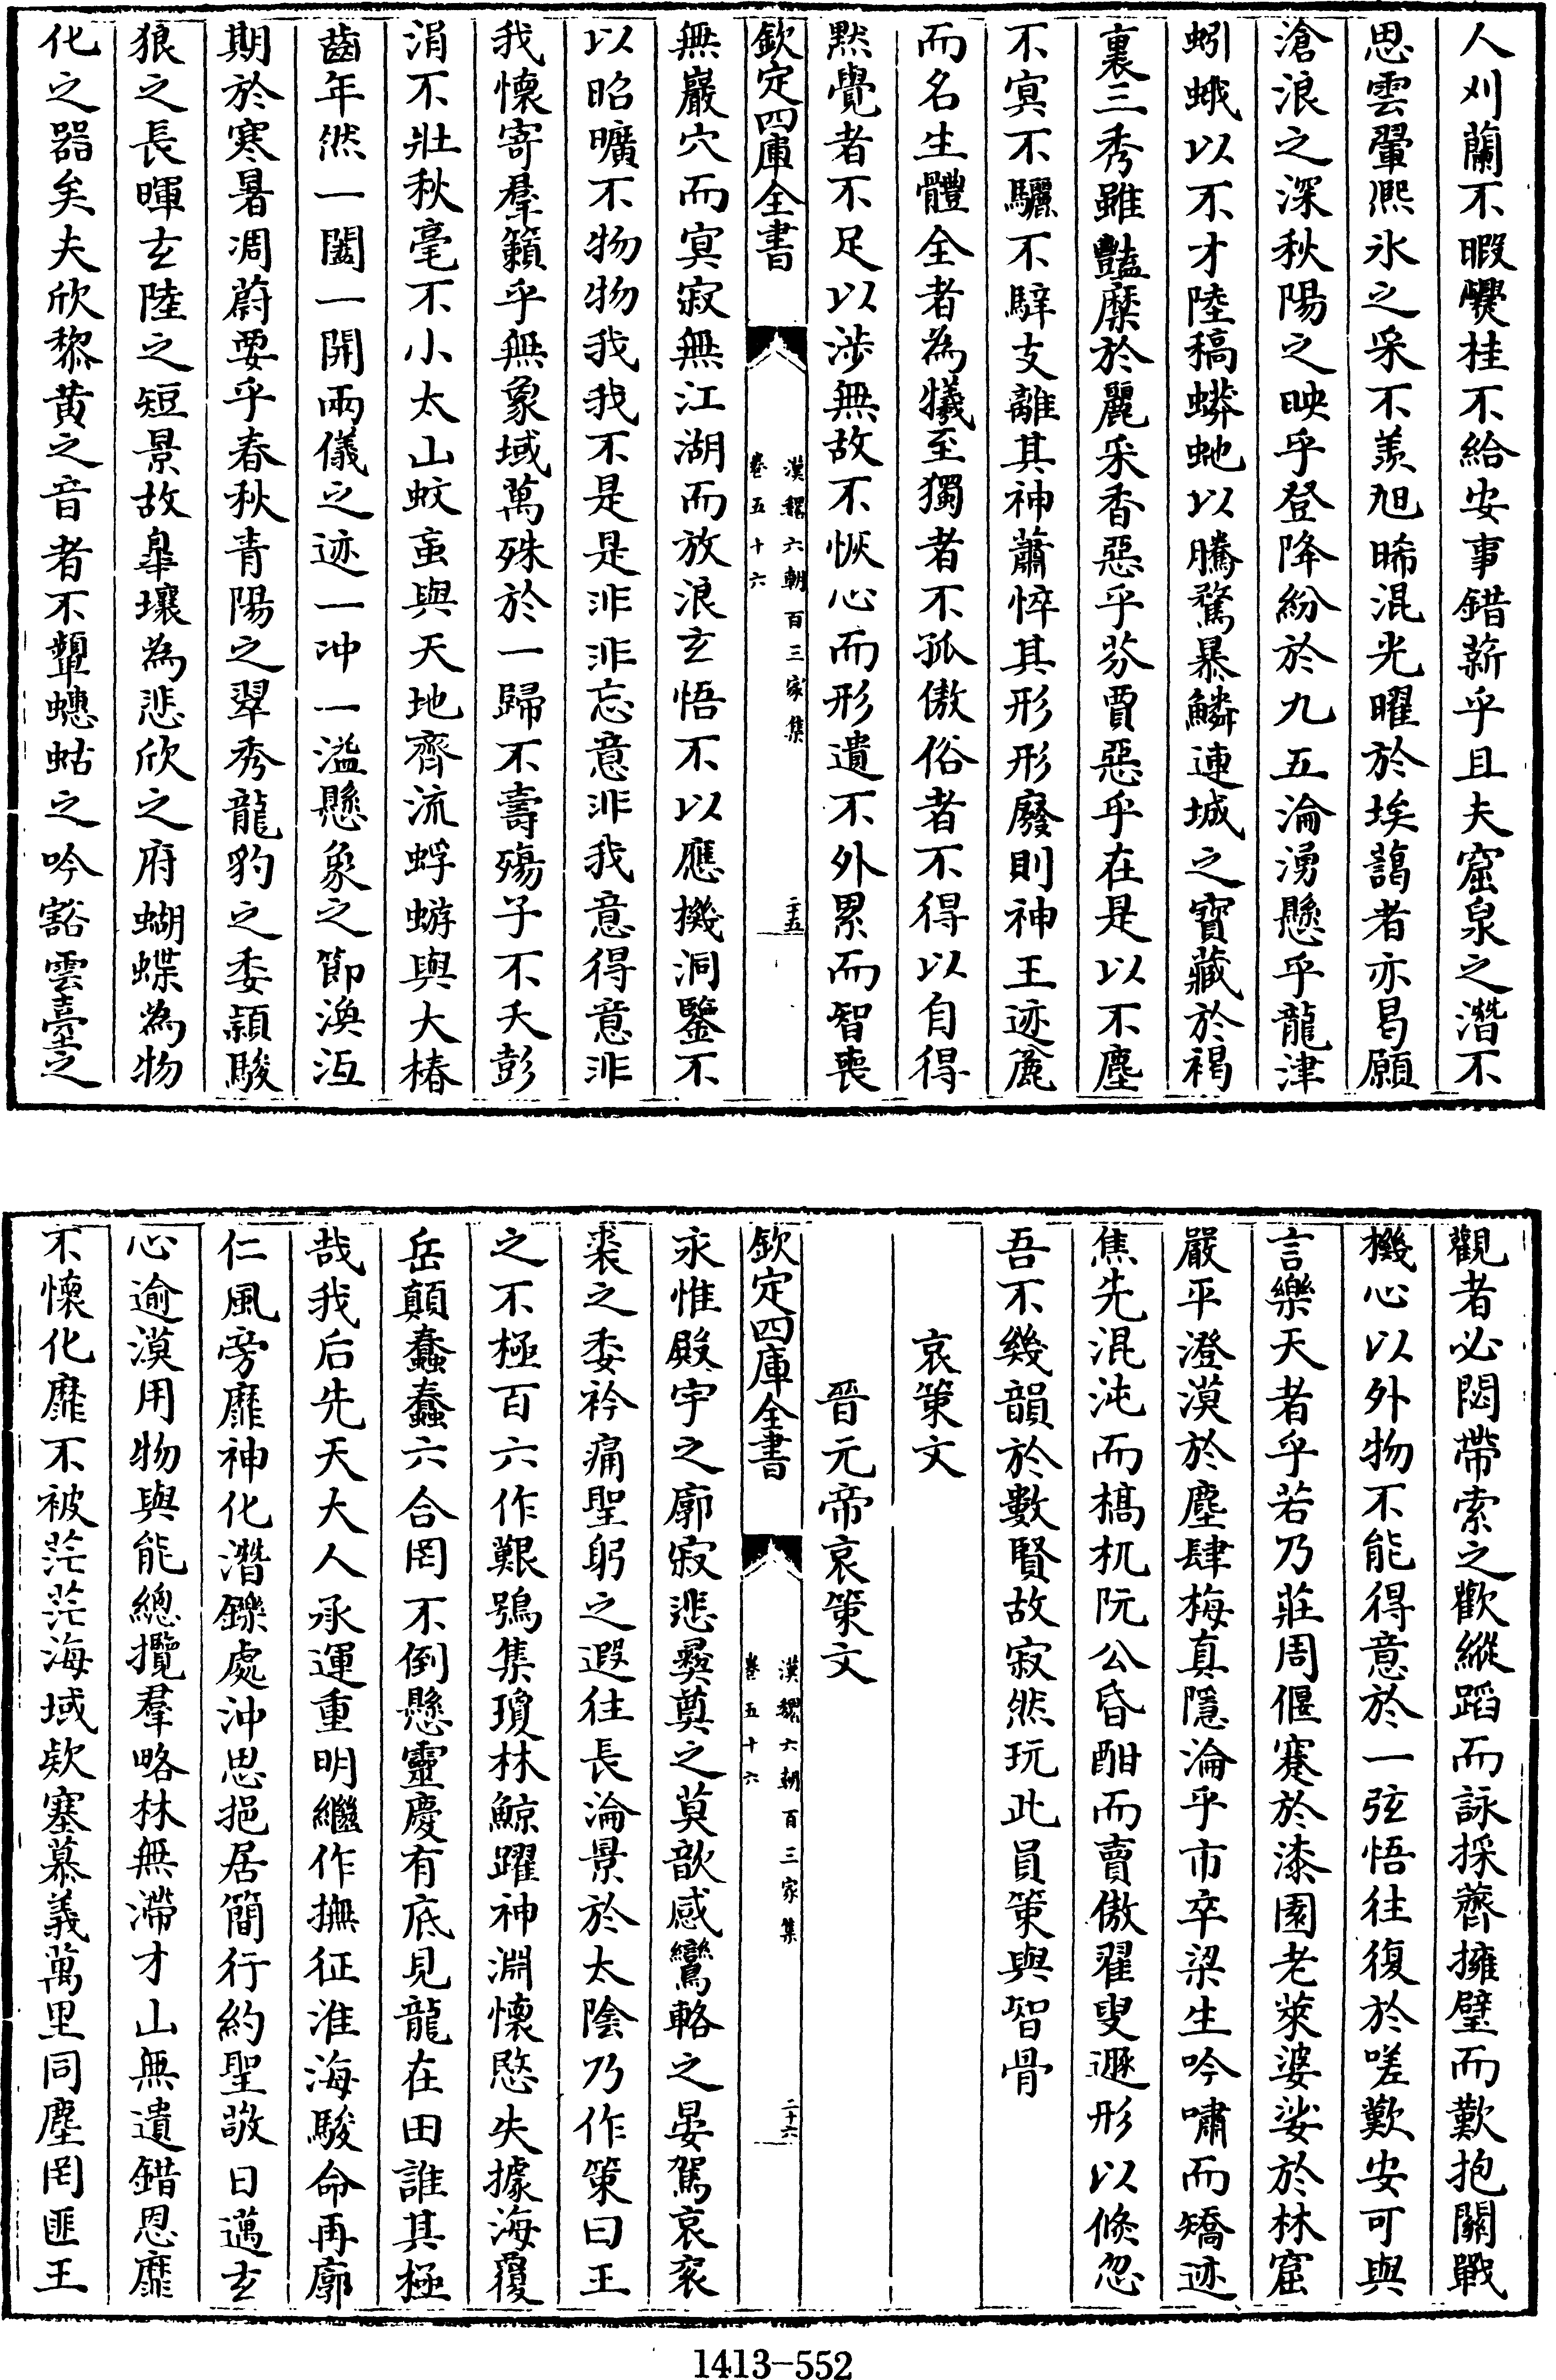 人刈蘭不暇爨桂不給安事錯薪乎且夫窟泉之潛不
思雲翬熙氷之采不羨旭晞混光曜於埃藹者亦曷願
滄浪之深秋陽之映乎登降紛於九五淪湧懸乎龍津
蚓蛾以不才陸稿蟒虵以騰騖暴鱗連城之寶藏於褐
裏三秀雖豔縻於麗采香惡乎芬賈惡乎在是以不塵
不冥不驪不騂支離其神蕭悴其形形廢則神王迹麄
而名生體全者為犧至獨者不孤傲俗者不得以自得
默覺者不足以涉無故不恢心而形遺不外累而智喪
欽定四庫全書
漢魏六朝百三家集
卷五十六
二十五
無巖穴而冥寂無江湖而放浪玄悟不以應機洞鑒不
以昭曠不物物我我不是是非非忘意非我意得意非
我懷寄羣籟乎無象域萬殊於一歸不壽殤子不夭彭
涓不壯秋毫不小太山蚊䖟與天地齊流蜉蝣與大椿
齒年然一闔一開兩儀之迹一冲一溢懸象之節渙沍
期於寒暑凋蔚要乎春秋青陽之翠秀龍豹之委穎駿
狼之長暉玄陸之短景故臯壤為悲欣之府蝴蝶為物
化之器矣夫欣黎黄之音者不顰蟪蛄之吟豁雲臺之
觀者必悶帶索之歡縱蹈而詠採薺擁璧而歎抱關戰
機心以外物不能得意於一弦悟往復於嗟歎安可與
言樂天者乎若乃莊周偃蹇於漆園老萊婆娑於林窟
嚴平澄漠於塵肆梅真隱淪乎市卒梁生吟嘯而矯迹
焦先混沌而槁杌阮公昏酣而賣傲翟叟遯形以倏忽
吾不幾韻於數賢故寂然玩此員策與智骨
哀策文
晉元帝哀策文
欽定四庫全書
漢魏六朝百三家集
卷五十六
二十六
永惟殿宇之廓寂悲彛奠之莫歆感鸞輅之晏駕哀衮
裘之委衿痛聖躬之遐往長淪景於太陰乃作策曰王
之不極百六作艱鴞集瓊林鯨躍神淵懷愍失據海覆
岳顛蠢蠢六合罔不倒懸靈慶有底見龍在田誰其極
哉我后先天大人承運重明繼作撫征淮海駿命再廓
仁風旁靡神化潛鑠處沖思挹居簡行約聖敬日邁玄
心逾漠用物與能總攬羣略林無滯才山無遺錯恩靡
不懷化靡不被茫茫海域欵塞慕義萬里同塵罔匪王
1413-552